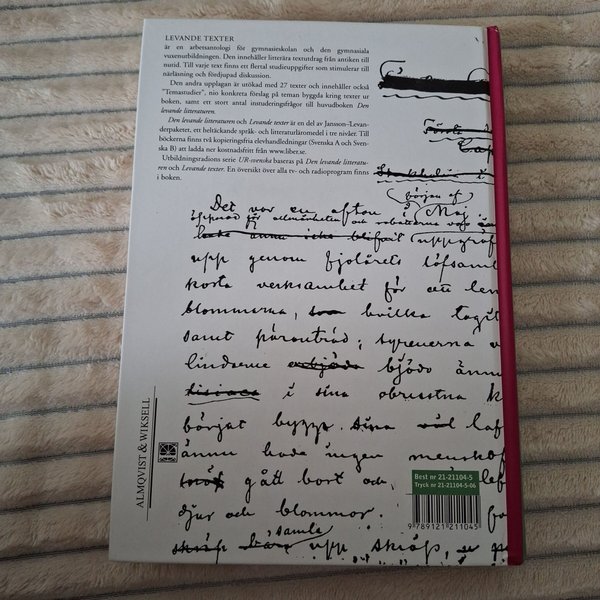 LEVANDE TEXTER
är en arbetsantologi för gymnasieskolan och den gymnasiala
vuxenutbildningen. Den innehåller litterära textutdrag från antiken till
nutid. Till varje text finns ett flertal studieuppgifter som stimulerar till
närläsning och fördjupad diskussion.
Den andra upplagan är utökad med 27 texter och innehåller också
"Temastudier", nio konkreta förslag på teman byggda kring texter ur
boken, samt ett stort antal instuderingsfrågor till huvudboken Den
levande litteraturen.
Den levande litteraturen och Levande texter är en del av Jansson–Levan-
derpaketet, ett heltäckande språk- och litteraturläromedel i tre nivåer. Till
böckerna finns två kopieringsfria elevhandledningar (Svenska A och Sven-
ska B) att ladda ner kostnadsfritt från www.liber.se.
Utbildningsradions serie UR-svenska baseras på Den levande litteratu-
ren och Levande texter. En översikt över alla tv- och radioprogram finns
i boken.
början af
Det var en afton i Maj
öppnad för allmänheten och
upp genom fjolårets löfsaml
korta verksamhet för att len
blommorna, hvilka tagit
samt päronträd; syrenerna
lindarne bjödo ännu
i sina obrustna k
börjat bygga
ännu hade ingen mensko
gått bort och
djur och blommor.
samla
upp skräp,
ALMQVIST & WIKSELL
Best nr 21-21104-5
Tryck nr 21-21104-5-06
9 789121 211045